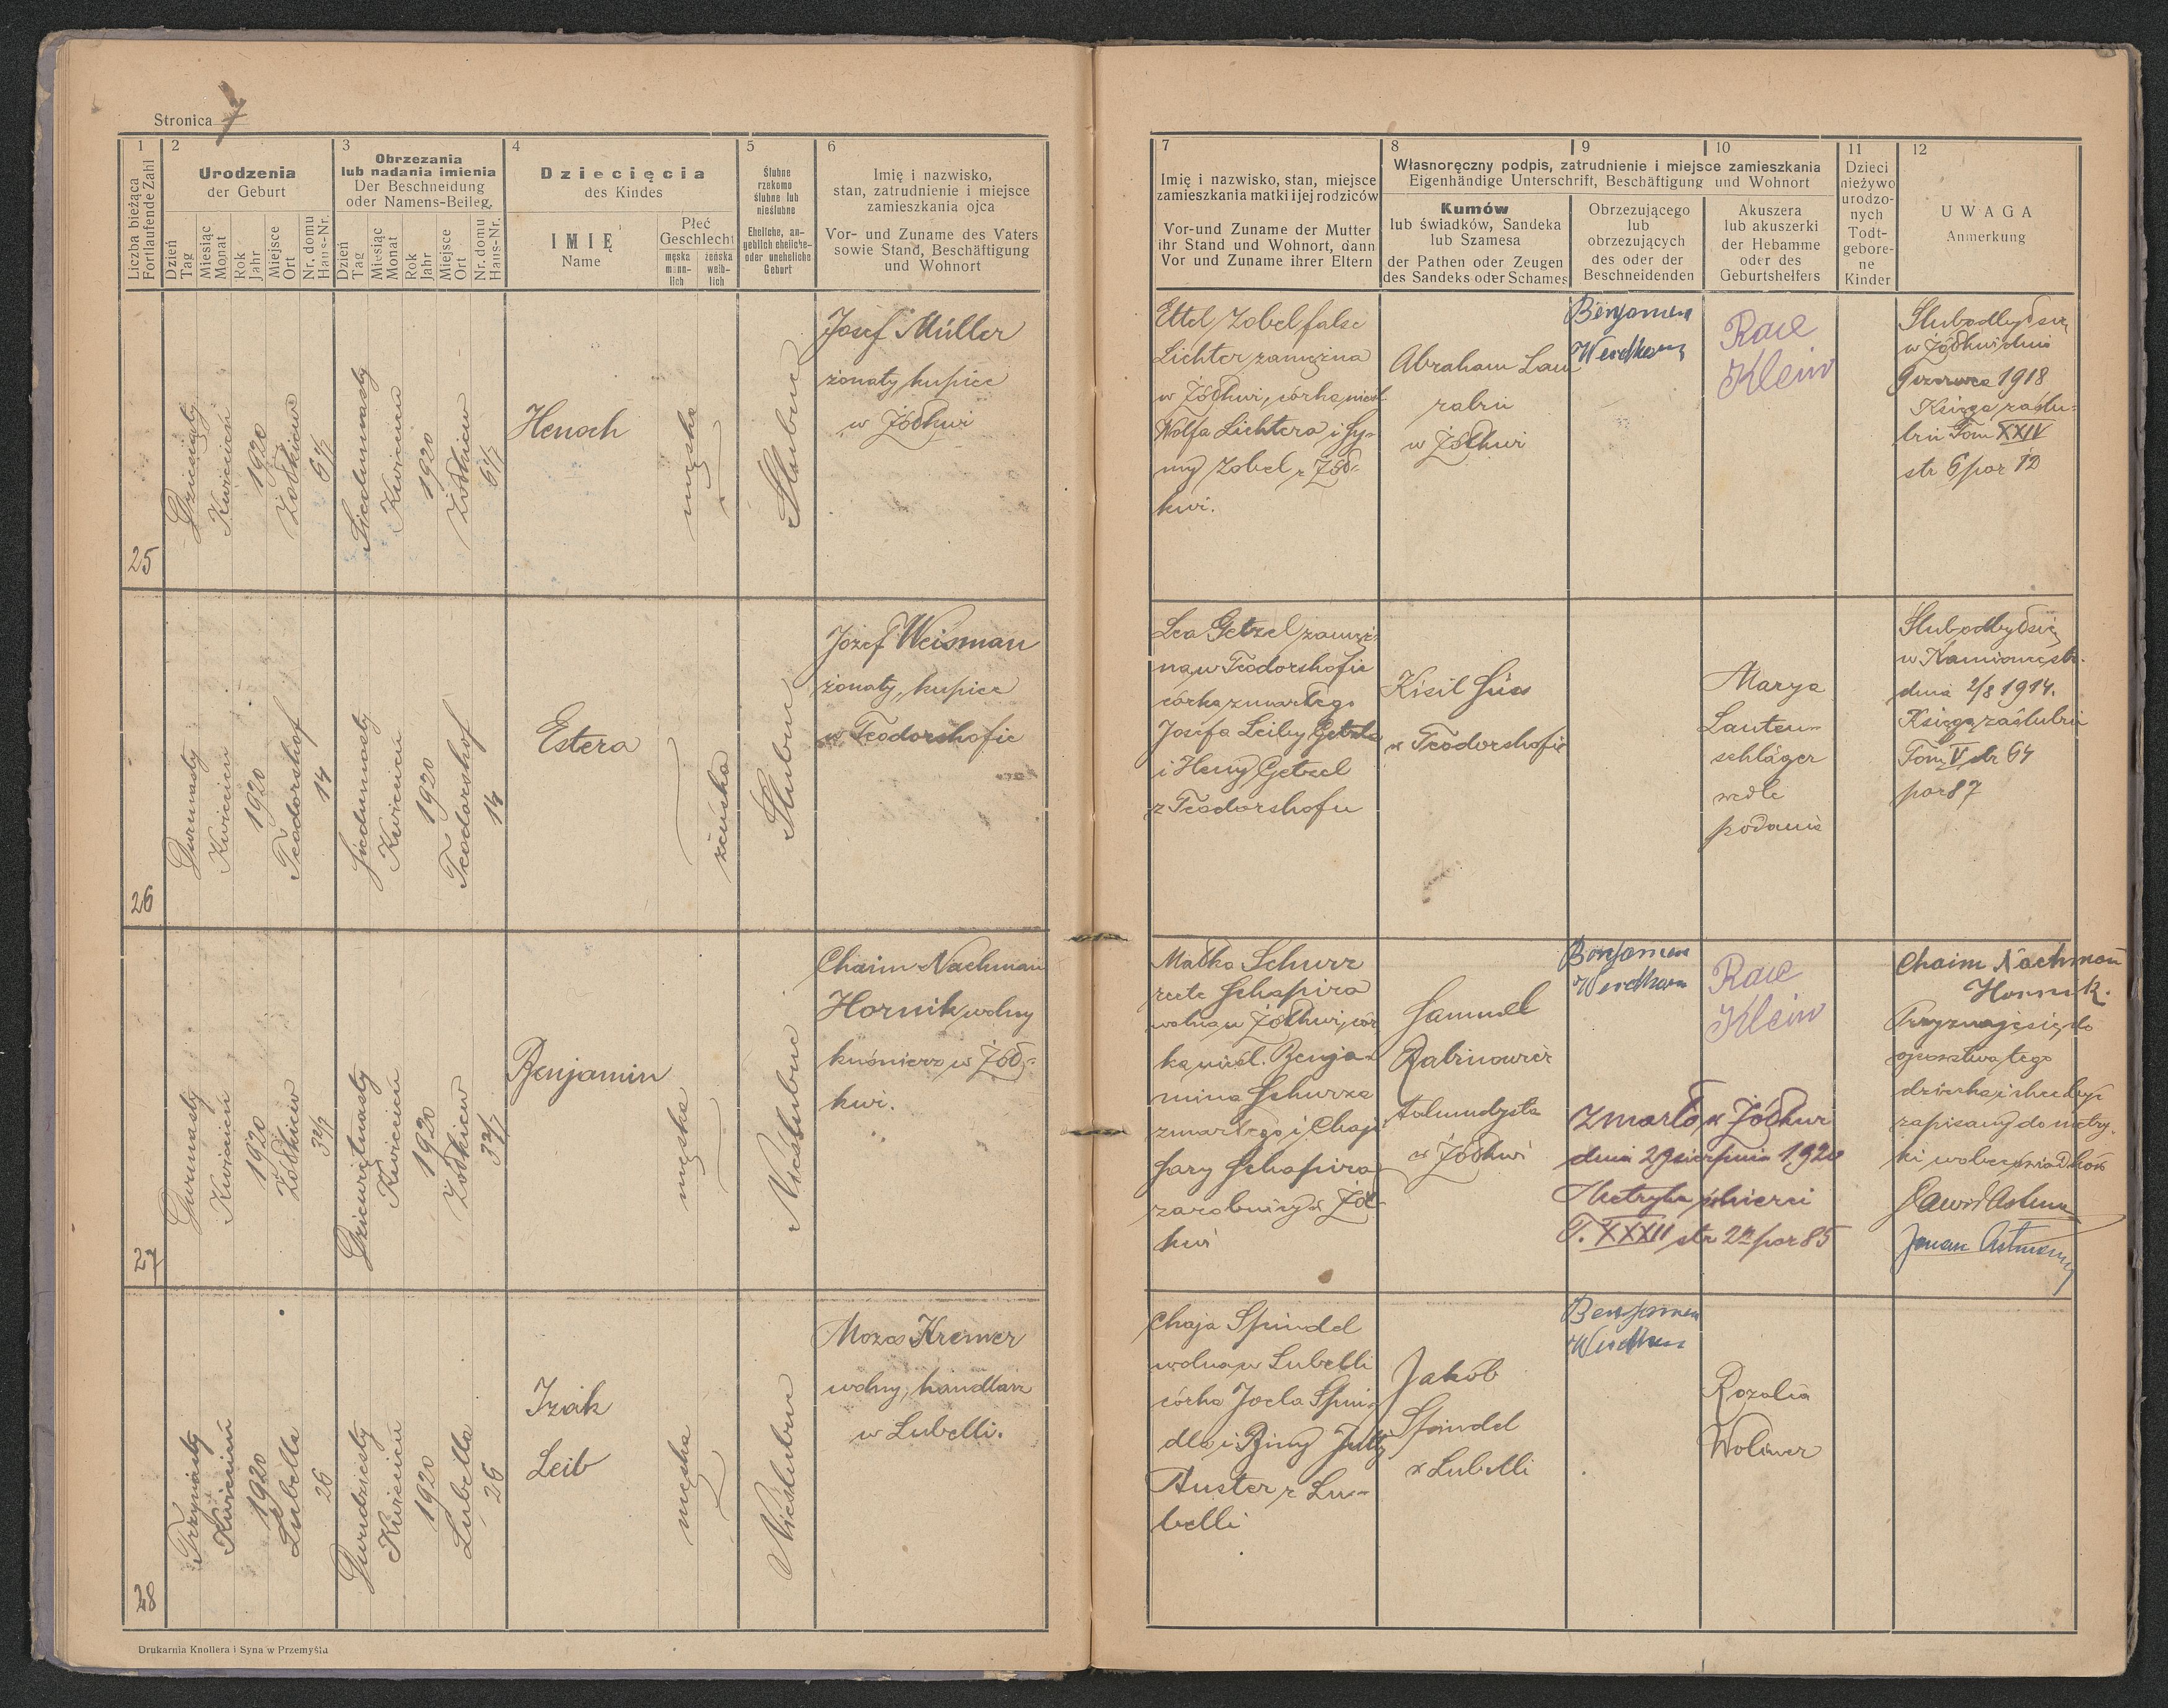 Stronica 7
1
Liczba bieżąca
Fortlaufende Zahl
2
Urodzenia
der Geburt
Dzień
Tag
Miesiąc
Monat
Rok
Jahr
Miejsce
Ort
Nr. domu
Haus-Nr.
3
Obrzezania
lub nadania imienia
Der Beschneidung
oder Namens-Beileg.
Dzień
Tag
Miesiąc
Monat
Rok
Jahr
Miejsce
Ort
Nr. domu
Haus-Nr.
4
Dziecięcia
des Kindes
IMIĘ
Name
Płeć
Geschlecht
męska
männ-
lich
żeńska
weib-
lich
5
Ślubne
rzekomo
ślubne lub
nieślubne
Eheliche, an-
geblich eheliche-
oder uneheliche
Geburt
6
Imię i nazwisko,
stan, zatrudnienie i miejsce
zamieszkania ojca
Vor- und Zuname des Vaters
sowie Stand, Beschäftigung
und Wohnort
7
Imię i nazwisko, stan, miejsce
zamieszkania matki i jej rodziców
Vor-und Zuname der Mutter
ihr Stand und Wohnort, dann
Vor und Zuname ihrer Eltern
8
9
10
Własnoręczny podpis, zatrudnienie i miejsce zamieszkania
Eigenhändige Unterschrift, Beschäftigung und Wohnort
Kumów
lub świadków, Sandeka
lub Szamesa
der Pathen oder Zeugen
des Sandeks oder Schames
Obrzezującego
lub
obrzezujących
des oder der
Beschneidenden
Akuszera
lub akuszerki
der Hebamme
oder des
Geburtshelfers
11
Dzieci
nieżywo
urodzo-
nych
Todt-
gebore-
ne
Kinder
12
UWAGA
Anmerkung
25
Dziesiąty
Kwiecień
1920
Żółkiew
Siedemnasty
Kwiecień
1920
Żółkiew
Henoch
męska
Ślubne
Josef Müller
żonaty, kupiec
w Żółkwi
Ettel Zobel false
Lichter zamężna
w Żółkwi, córka nieśl.
Wolfa Lichtera i Sy-
my Zobel z Żół-
kwi.
Abraham Lau
rabin
w Żółkwi
Benjamin
Race
Klein
Ślub odbył się
w Żółkwi dnia
9 czerwca 1918
Księga zaślu-
bin Tom XXIV
str 6 poz 12
26
Dwunasty
Kwiecień
1920
Teodorshof
14
Siedemnasty
Kwiecień
1920
Teodorshof
14
Estera
żeńska
Ślubne
Józef Weisman
żonaty, kupiec
w Teodorshofie
Lea Getzel zamęż-
na w Teodorshofie
córka zmarłego
Josefa Leiby Getzla
i Heny Getzel
z Teodorshofu
Kisil Süss
w Teodorshofie
Marya
Lauten-
schläger
wedle
podania
Ślub odbył się
dnia 2/8 1914.
Księga zaślubin
Tom V str 64
poz 87
27
Dwunasty
Kwiecień
1920
Żółkiew
Dziewiętnasty
Kwiecień
1920
Żółkiew
Benjamin
męska
Nieślubne
Chaim Nachman
Hornik, wolny
kuśnierz w Żół-
kwi.
Małka Schurz
recte Schapira
wolna w Żółkwi, cór
ka nieśl. Benja-
mina Schurza
zmarłego i Chaji
Sary Schapira
zarobnicy w Żół-
kwi
Samuel
Rabinowicz
talmudysta
w Żółkwi
Benjamin
Race
Klein
Zmarło w Żółkwi
dnia 29 sierpnia 1920
Metryka śmierci
T. XXXII str 22 poz 85
Chaim Nachman
Hornik.
Przyznaję się do
ojcostwa tego
dziecka i chcę być
zapisany do metry-
ki wobec świadków
28
Trzynasty
Kwiecień
1920
Lubella
26
Dwudziesty
Kwiecień
1920
Lubella
26
Izak
Leib
męska
Nieślubne
Mozes Kremer
wolny, handlarz
w Lubelli.
Chaja Spindel
wolna w Lubelli
córka Joela Spin-
dla i Biny Jutty
Auster z Lu-
belli
Jakób
Spindel
w Lubelli
Benjamin
Rozalia
Wolmer
Drukarnia Knollera i Syna w Przemyślu